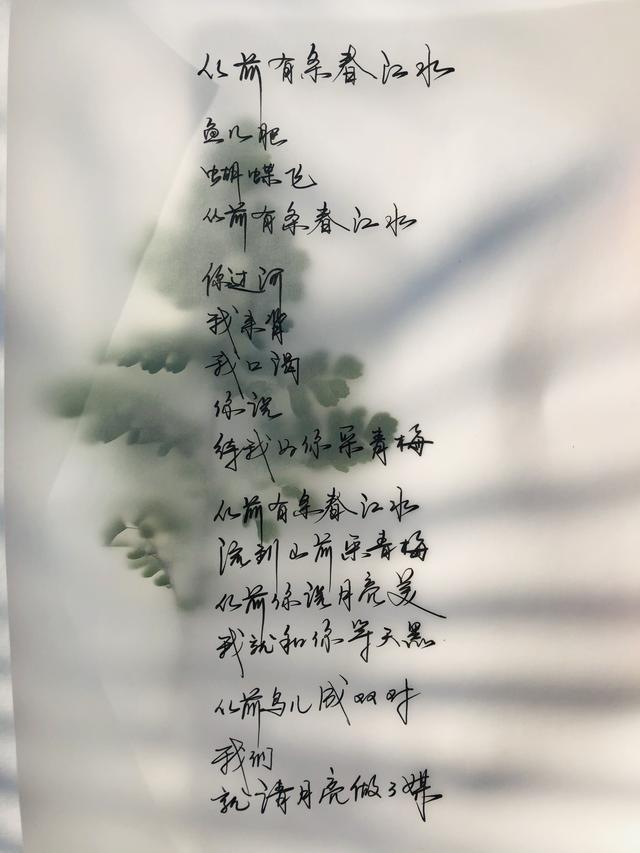 从前有条春江水
鱼儿肥
蝴蝶飞
从前有条春江水
你过河
我来背
我口渴
你说
等我为你采青梅
从前有条春江水
流到山前采青梅
从前你说月亮美
我就和你等天黑
从前鸟儿成双对
我们
就请月亮做了媒